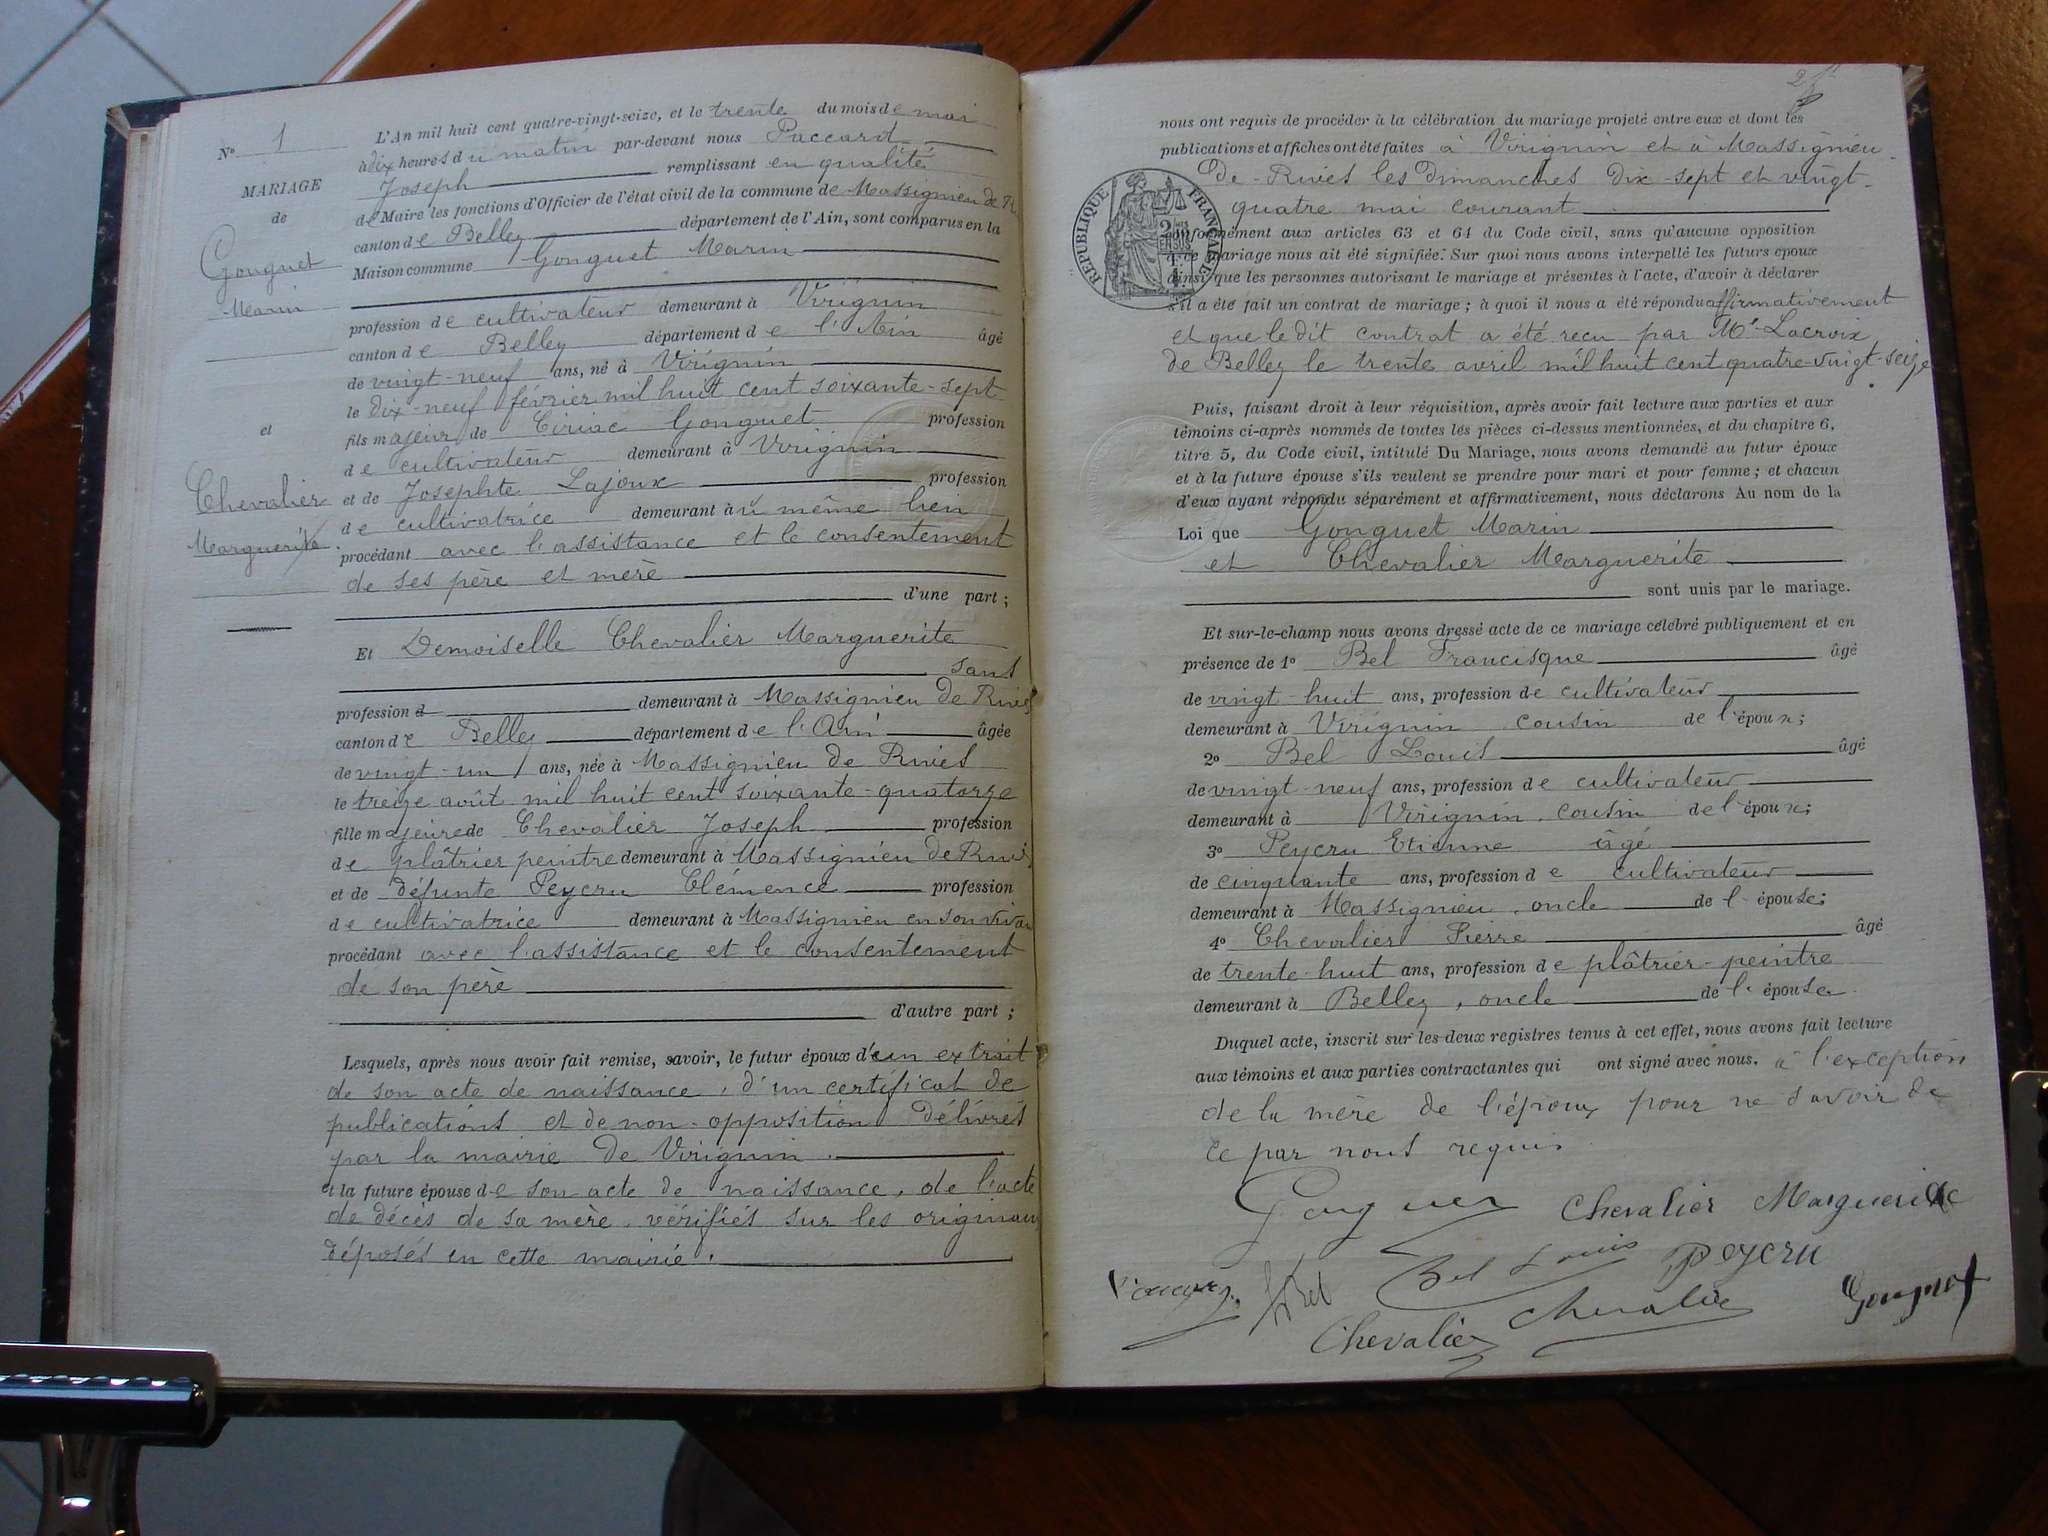 N° 1
MARIAGE
de
Gonguet
Marin
et
Chevalier
Marguerite
L'An mil huit cent quatre-vingt-seize, et le trente du mois de mai
à dix heures du matin par-devant nous Paccard
Joseph remplissant en qualité
de Maire les fonctions d'Officier de l'état civil de la commune de Massignieu de R
canton de Belley département de l'Ain, sont comparus en la
Maison commune Gonguet Marin
profession de cultivateur demeurant à Virignin
canton de Belley département de l'Ain âgé
de vingt-neuf ans, né à Virignin
le dix-neuf février mil huit cent soixante-sept
fils majeur de Ciriac Gonguet profession
de cultivateur demeurant à Virignin
et de Josephte Lajoux profession
de cultivatrice demeurant à u même lieu
procédant avec l'assistance et le consentement
de ses père et mère
d'une part ;
Et Demoiselle Chevalier Marguerite
sans
profession d demeurant à Massignieu de Rives
canton de Belley département de l'Ain âgée
de vingt-un ans, née à Massignieu de Rives
le treize août mil huit cent soixante-quatorze
fille majeure de Chevalier Joseph profession
de plâtrier peintre demeurant à Massignieu de Rives
et de défunte Peycru Clémence profession
de cultivatrice demeurant à Massignieu en son vivan
procédant avec l'assistance et le consentement
de son père
d'autre part ;
Lesquels, après nous avoir fait remise, savoir, le futur époux d'un extrait
de son acte de naissance, d'un certificat de
publications et de non-opposition délivrés
par la mairie de Virignin.
et la future épouse de son acte de naissance, de l'acte
de décès de sa mère, vérifiés sur les originaux
déposés en cette mairie.
nous ont requis de procéder à la célébration du mariage projeté entre eux et dont les
publications et affiches ont été faites à Virignin et à Massignieu
de-Rives les dimanches dix-sept et vingt-
quatre mai courant
RÉPUBLIQUE FRANÇAISE
conformément aux articles 63 et 64 du Code civil, sans qu'aucune opposition
à ce mariage nous ait été signifiée. Sur quoi nous avons interpellé les futurs époux
ainsi que les personnes autorisant le mariage et présentes à l'acte, d'avoir à déclarer
s'il a été fait un contrat de mariage ; à quoi il nous a été répondu affirmativement
et que le dit contrat a été reçu par Me Lacroix
de Belley le trente avril mil huit cent quatre-vingt-seize
Puis, faisant droit à leur réquisition, après avoir fait lecture aux parties et aux
témoins ci-après nommés de toutes les pièces ci-dessus mentionnées, et du chapitre 6,
titre 5, du Code civil, intitulé Du Mariage, nous avons demandé au futur époux
et à la future épouse s'ils veulent se prendre pour mari et pour femme ; et chacun
d'eux ayant répondu séparément et affirmativement, nous déclarons Au nom de la
Loi que Gonguet Marin
et Chevalier Marguerite
sont unis par le mariage.
Et sur-le-champ nous avons dressé acte de ce mariage célébré publiquement et en
présence de 1° Bel Francisque âgé
de vingt-huit ans, profession de cultivateur
demeurant à Virignin cousin de l'époux;
2° Bel Louis âgé
de vingt-neuf ans, profession de cultivateur
demeurant à Virignin, cousin de l'époux;
3° Peycru Etienne âgé
de cinquante ans, profession de cultivateur
demeurant à Massignieu, oncle de l'épouse;
4° Chevalier Pierre âgé
de trente-huit ans, profession de plâtrier-peintre
demeurant à Belley, oncle de l'épouse.
Duquel acte, inscrit sur les deux registres tenus à cet effet, nous avons fait lecture
aux témoins et aux parties contractantes qui ont signé avec nous. à l'exception
de la mère de l'époux pour ne savoir de
ce par nous requis
Gonguet Chevalier Marguerite
Bel Bel Louis Peycru
Chevalier Chevalier Gonguet